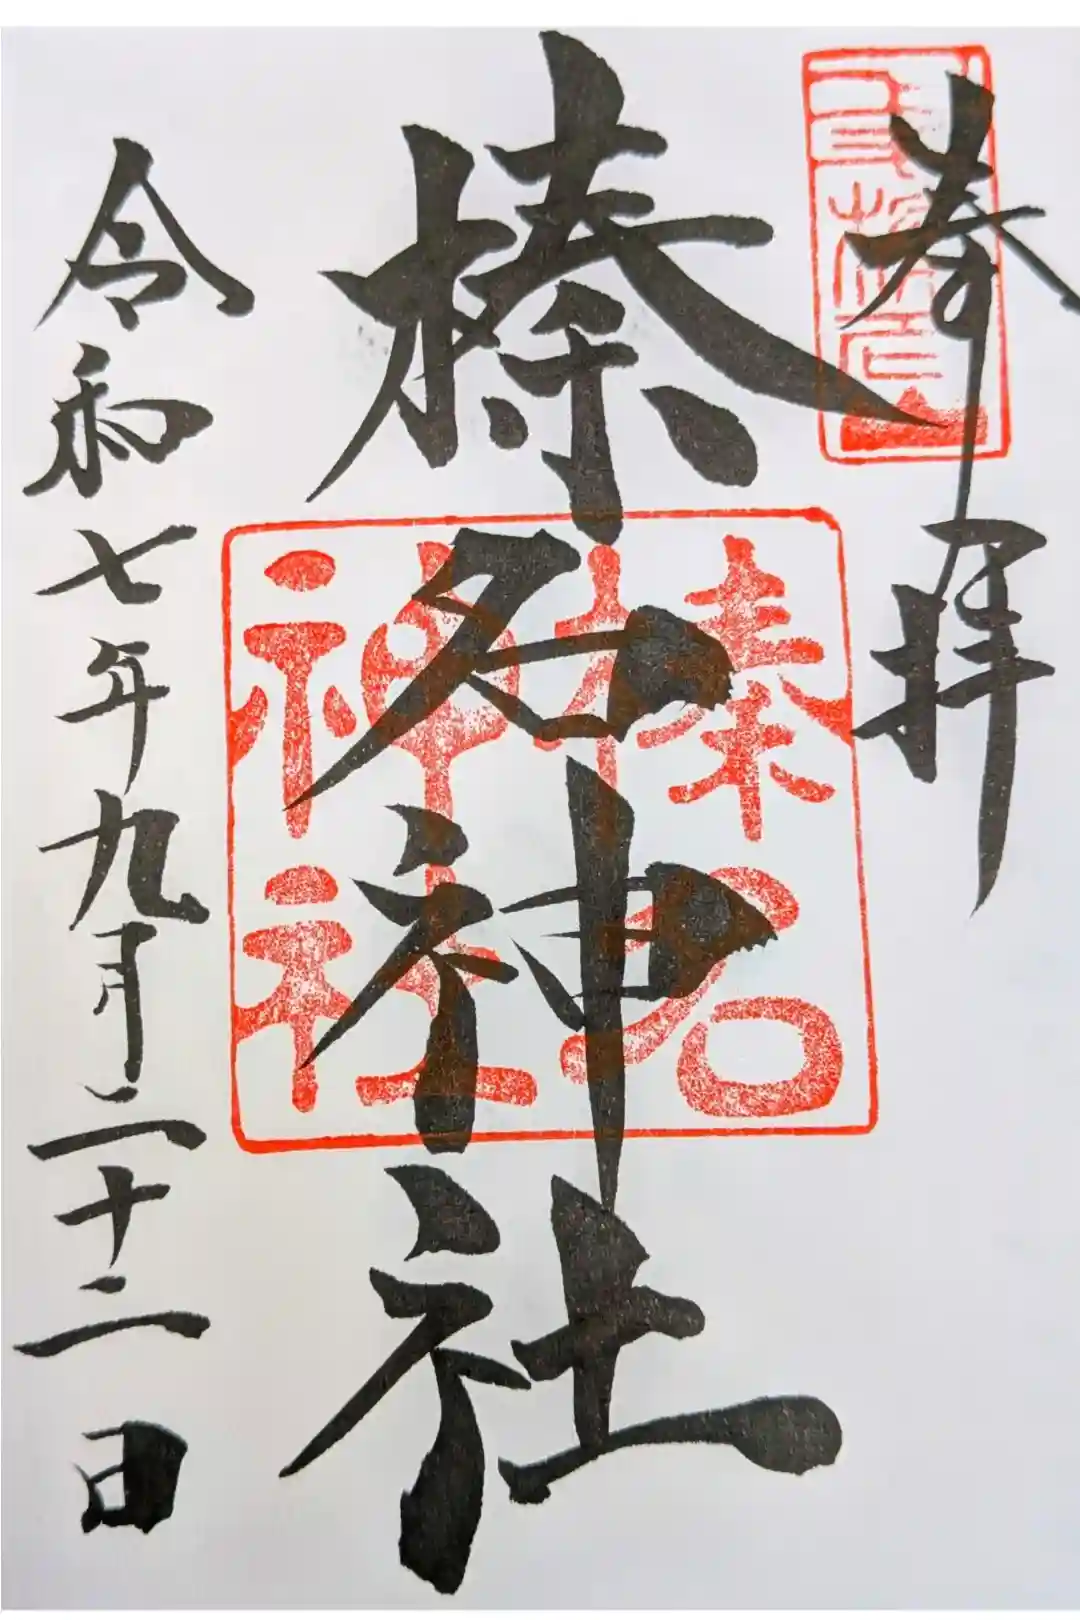 奉拝
榛名神社
榛名
神社
令和七年九月二十二日